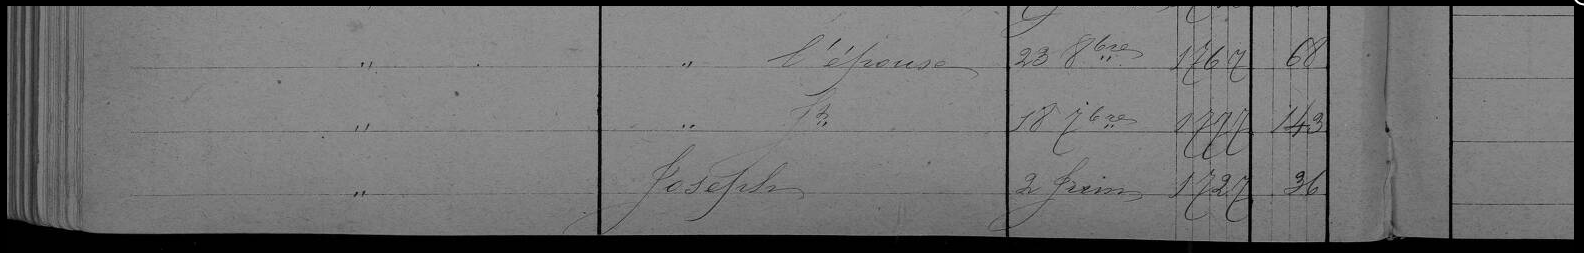 " " l'épouse 23 8bre 1767 68
" " 18 7bre 1777 143
" Joseph 2 Juin 1727 36